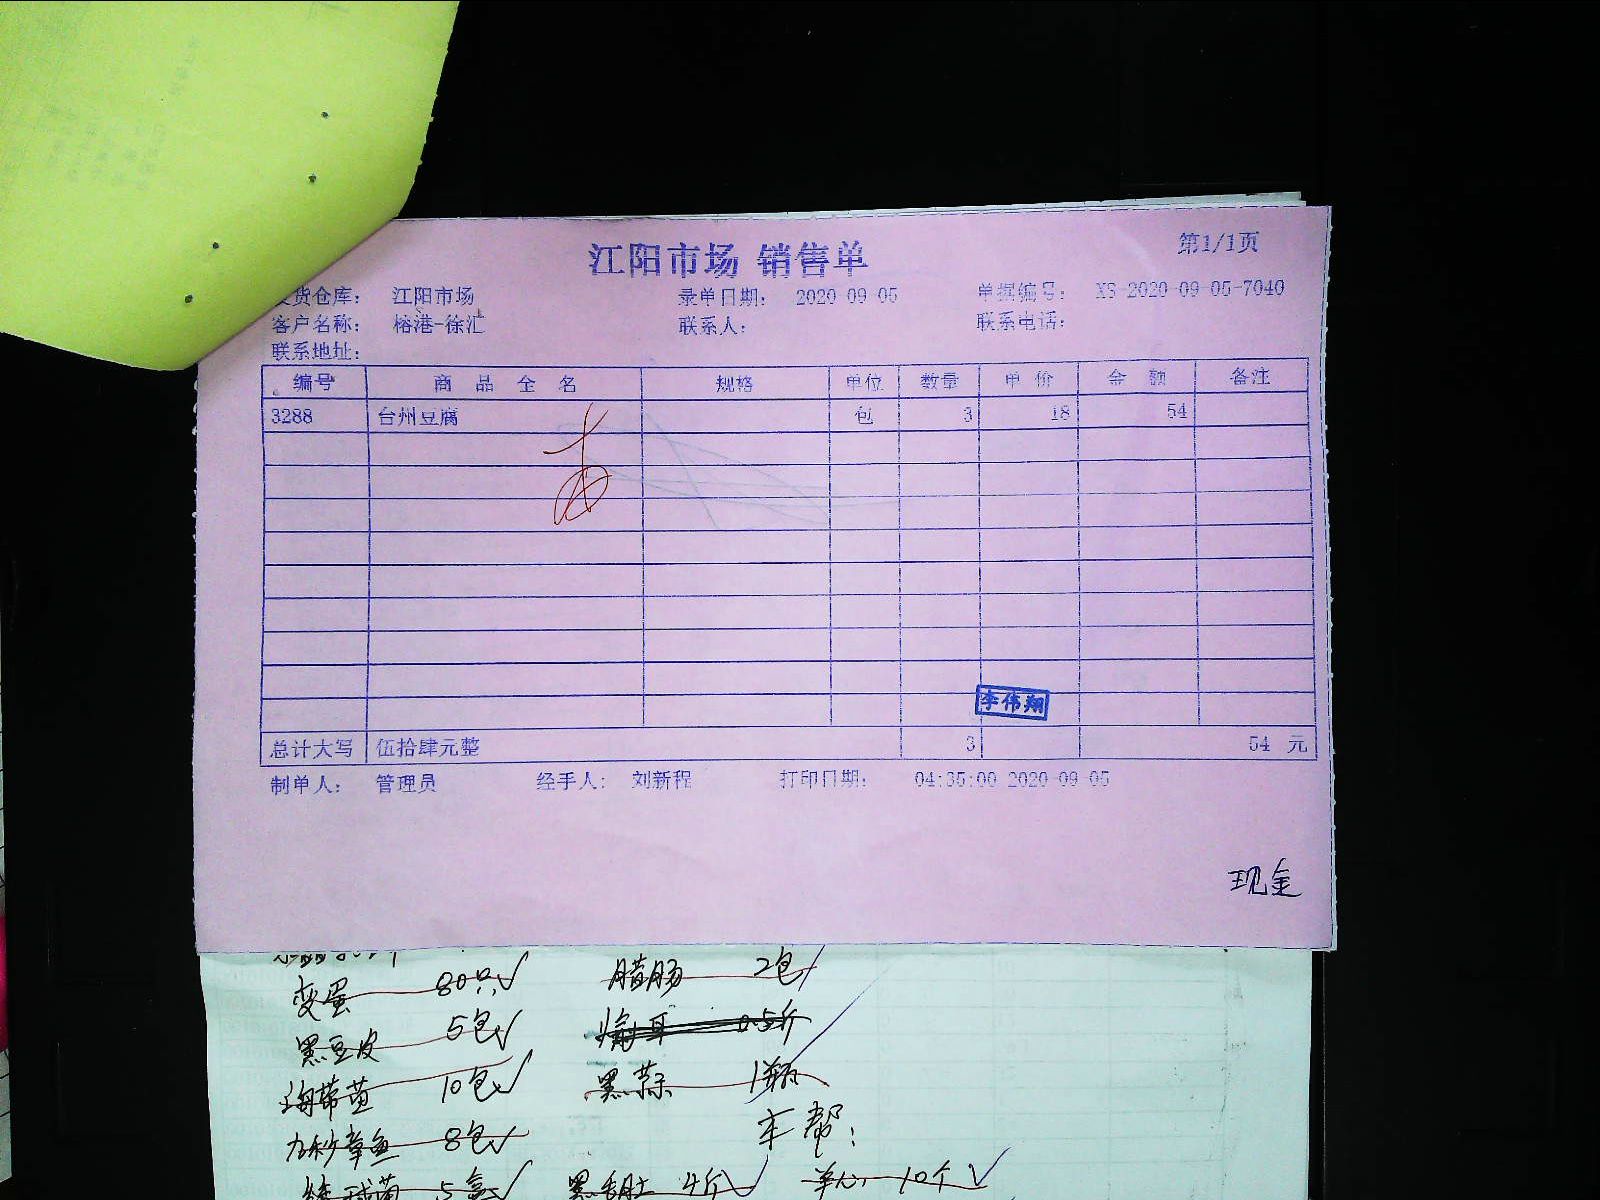 江阳市场 销售单
第1/1页
货仓库： 江阳市场 录单日期： 2020-09-05 单据编号： XS-2020-09-05-7040
客户名称： 榕港-徐汇 联系人： 联系电话：
联系地址：
编号 商品全名 规格 单位 数量 单价 金额 备注
3288 台州豆腐 包 3 18 54
李伟翔
总计大写 伍拾肆元整 3 54 元
制单人： 管理员 经手人： 刘新程 打印日期： 04:35:00 2020-09-05
现金
变蛋 80只 腊肠 2包
黑豆皮 5包 0.5斤
海带苗 10包 黑蒜 1瓶
章鱼 8包 车帮：
5盒 4斤 10个